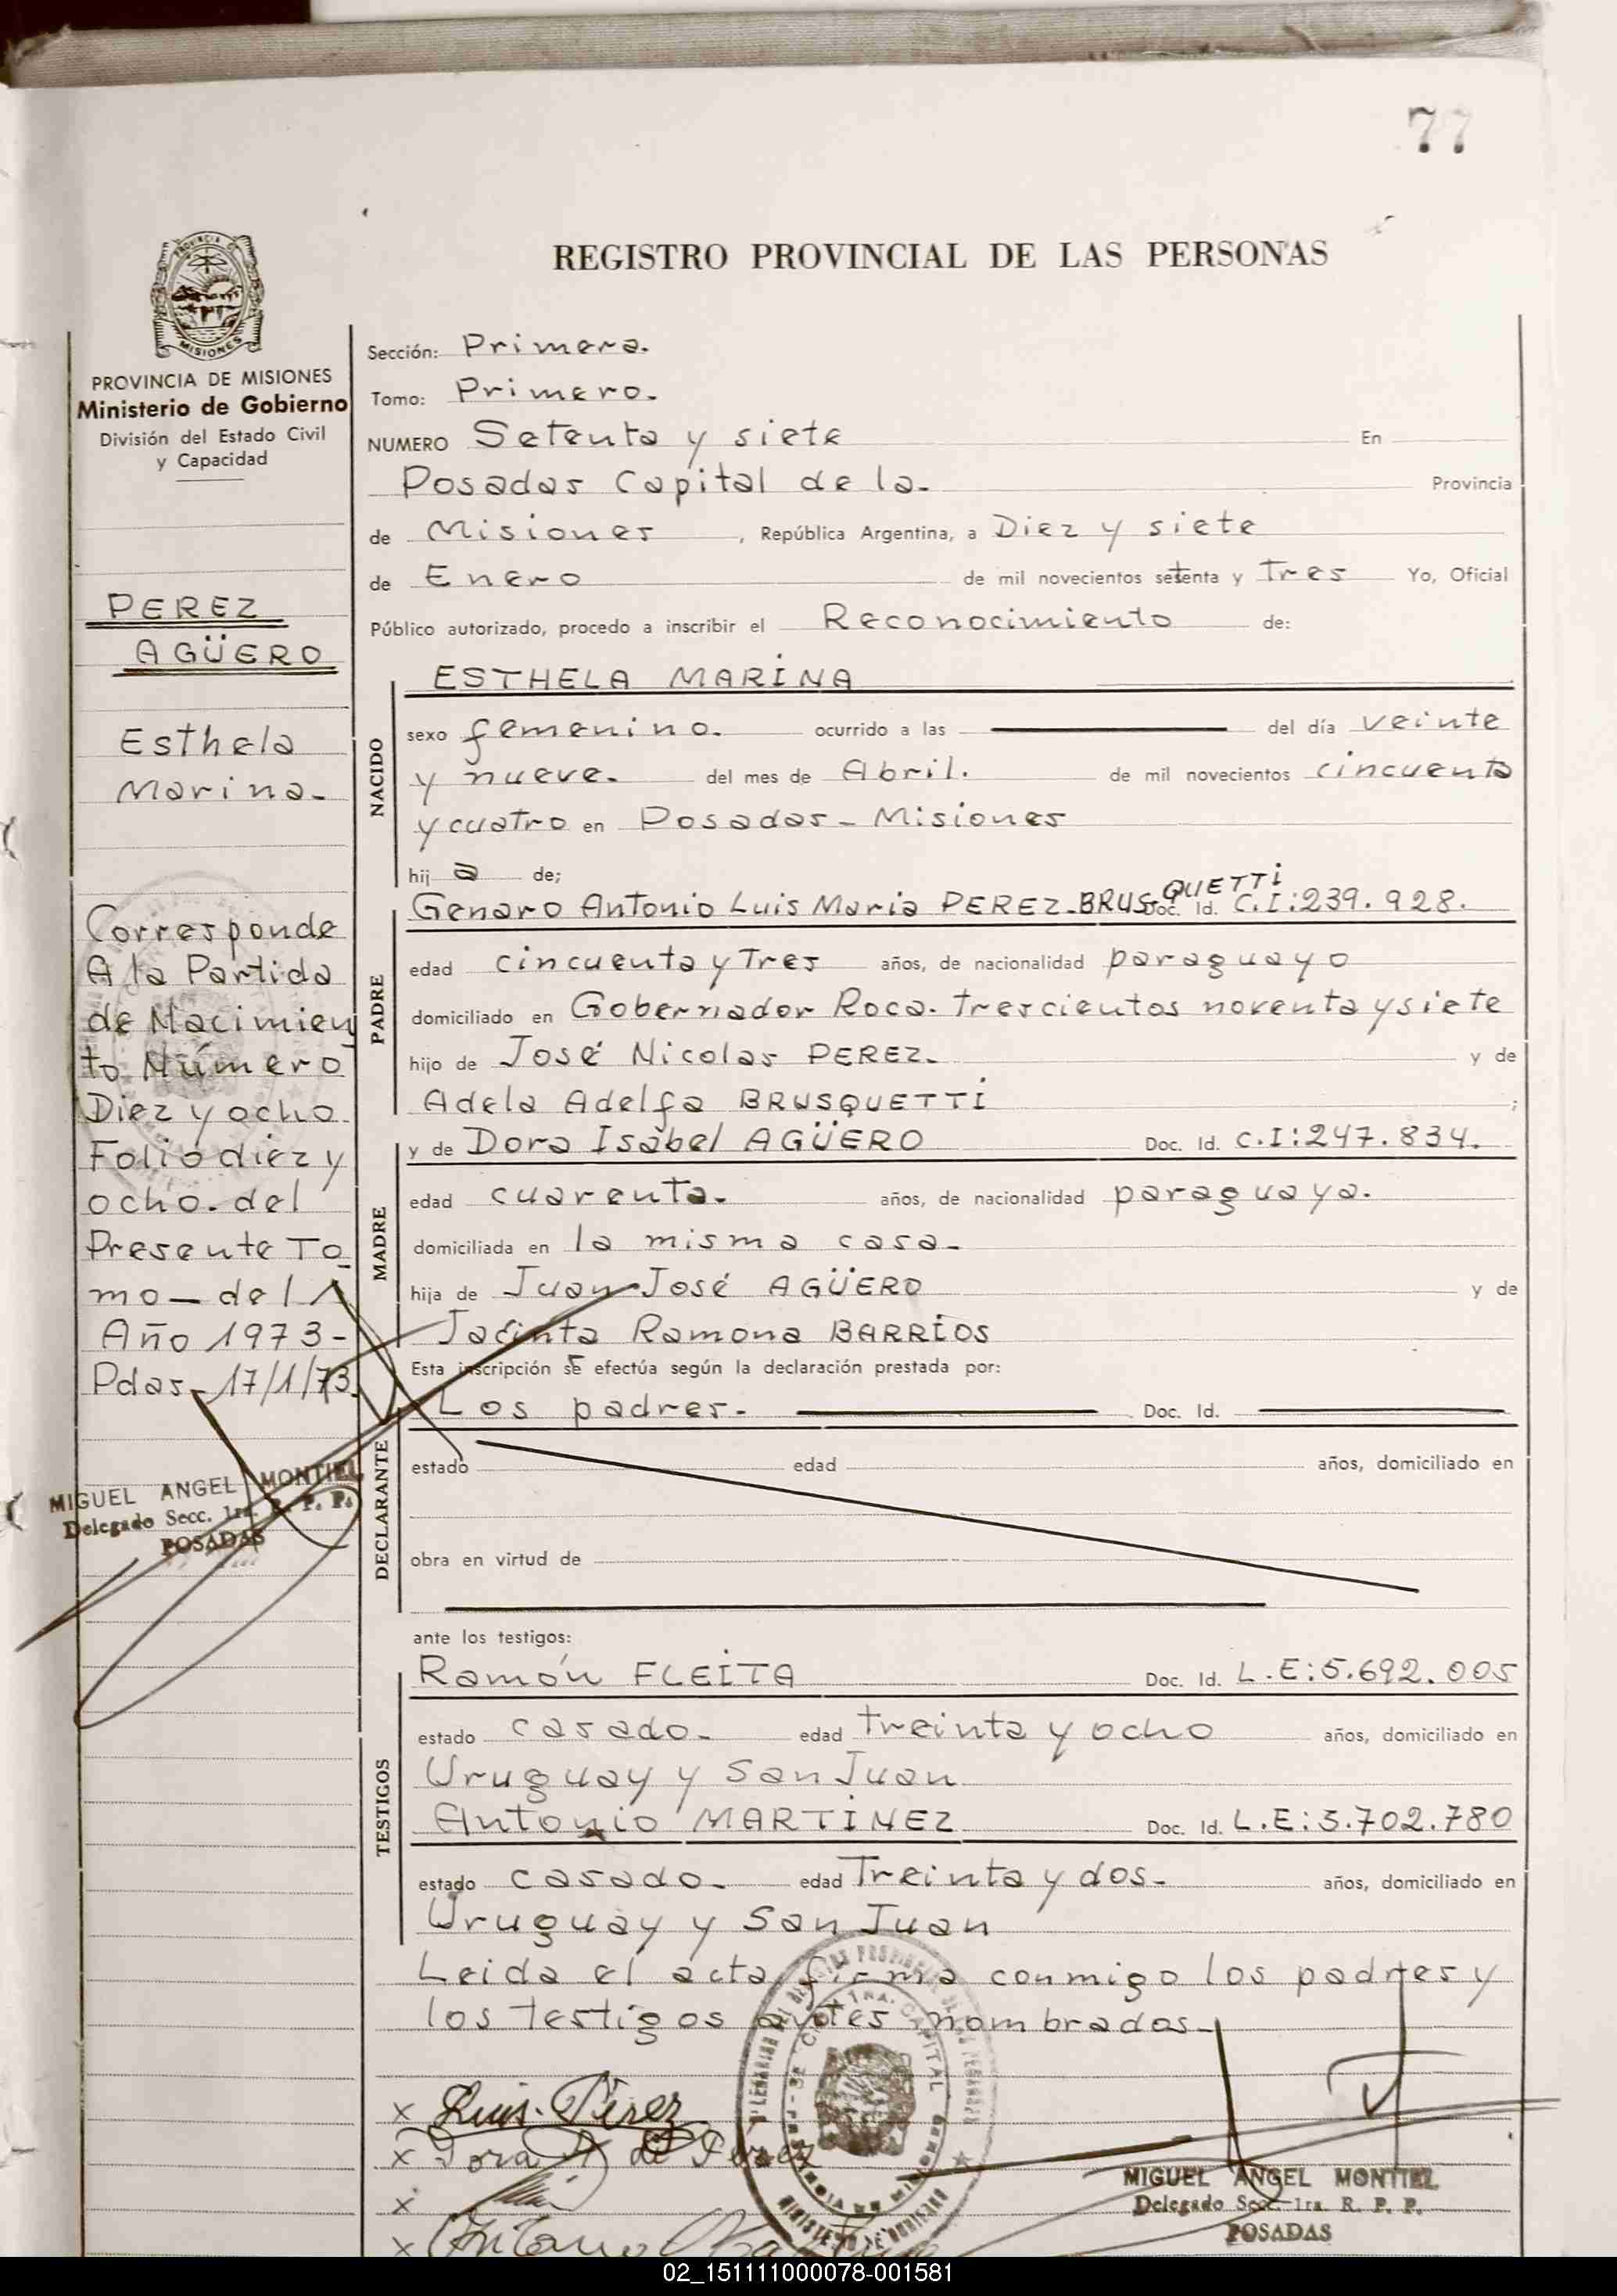 77
REGISTRO PROVINCIAL DE LAS PERSONAS
MISIONES
PROVINCIA DE MISIONES
Ministerio de Gobierno
División del Estado Civil
y Capacidad
PEREZ
AGÜERO
Esthela
Marina-
Corresponde
A la Partida
de Nacimien
to Número
Diez y ocho
Folio diez y
ocho. del
Presente To
mo - del
Año 1973-
Pdas- 17/1/73.
MIGUEL ANGEL MONTIEL
Delegado Secc. 1ra. R. P. P.
POSADAS
Sección: Primera.
Tomo: Primero.
NUMERO Setenta y siete En
Posadas Capital de la- Provincia
de Misiones, República Argentina, a Diez y siete
de Enero de mil novecientos setenta y Tres Yo, Oficial
Público autorizado, procedo a inscribir el Reconocimiento de:
NACIDO
ESTHELA MARINA
sexo femenino. ocurrido a las del día veinte
y nueve. del mes de Abril. de mil novecientos cincuenta
y cuatro en Posadas- Misiones
hij a de;
PADRE
Genaro Antonio Luis Maria PEREZ-BRUSQUETTI Doc. Id. C.I:239.928.
edad cincuenta y Tres años, de nacionalidad paraguayo
domiciliado en Gobernador Roca. trescientos noventa y siete
hijo de José Nicolas PEREZ- y de
Adela Adelfa BRUSQUETTI ;
MADRE
y de Dora Isabel AGÜERO Doc. Id. C.I:247.834.
edad cuarenta. años, de nacionalidad paraguaya.
domiciliada en la misma casa-
hija de Juan José AGÜERO y de
Jacinta Ramona BARRIOS
Esta inscripción se efectúa según la declaración prestada por:
DECLARANTE
Los padres- Doc. Id.
estado edad años, domiciliado en
obra en virtud de
ante los testigos:
TESTIGOS
Ramón FLEITA Doc. Id. L.E:5.692.005
estado casado- edad treinta y ocho años, domiciliado en
Uruguay y San Juan
Antonio MARTINEZ Doc. Id. L.E:5.702.780
estado casado- edad Treinta y dos- años, domiciliado en
Uruguay y San Juan
Leida el acta, firma conmigo los padres y
los testigos antes nombrados-
x Luis Pérez
x Dora A de Pérez
x
x Antonio
MIGUEL ANGEL MONTIEL
Delegado Secc. 1ra. R. P. P.
POSADAS
02_151111000078-001581